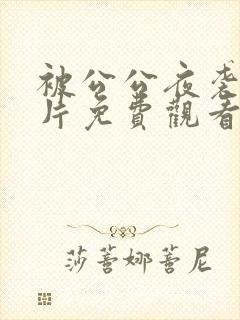 被公公夜袭
片免費觀看
莎蔷娜蔷尼